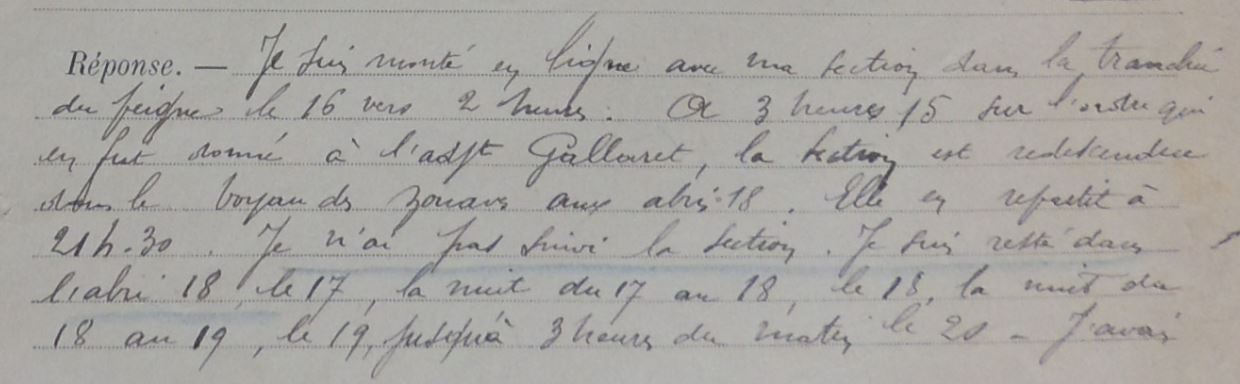 Réponse. — Je suis monté en ligne avec ma section dans la tranchée
du peigne le 16 vers 2 heures. A 3 heures 15 sur l'ordre qui
en fut donné à l'adjt Gallouet, la section est redescendue
dans le boyau des zouaves aux abris 18. Elle en repartit à
21h.30. Je n'ai pas suivi la section. Je suis resté dans
l'abri 18, le 17, la nuit du 17 au 18, le 18, la nuit du
18 au 19, le 19, jusqu'à 3 heures du matin le 20 - J'avais